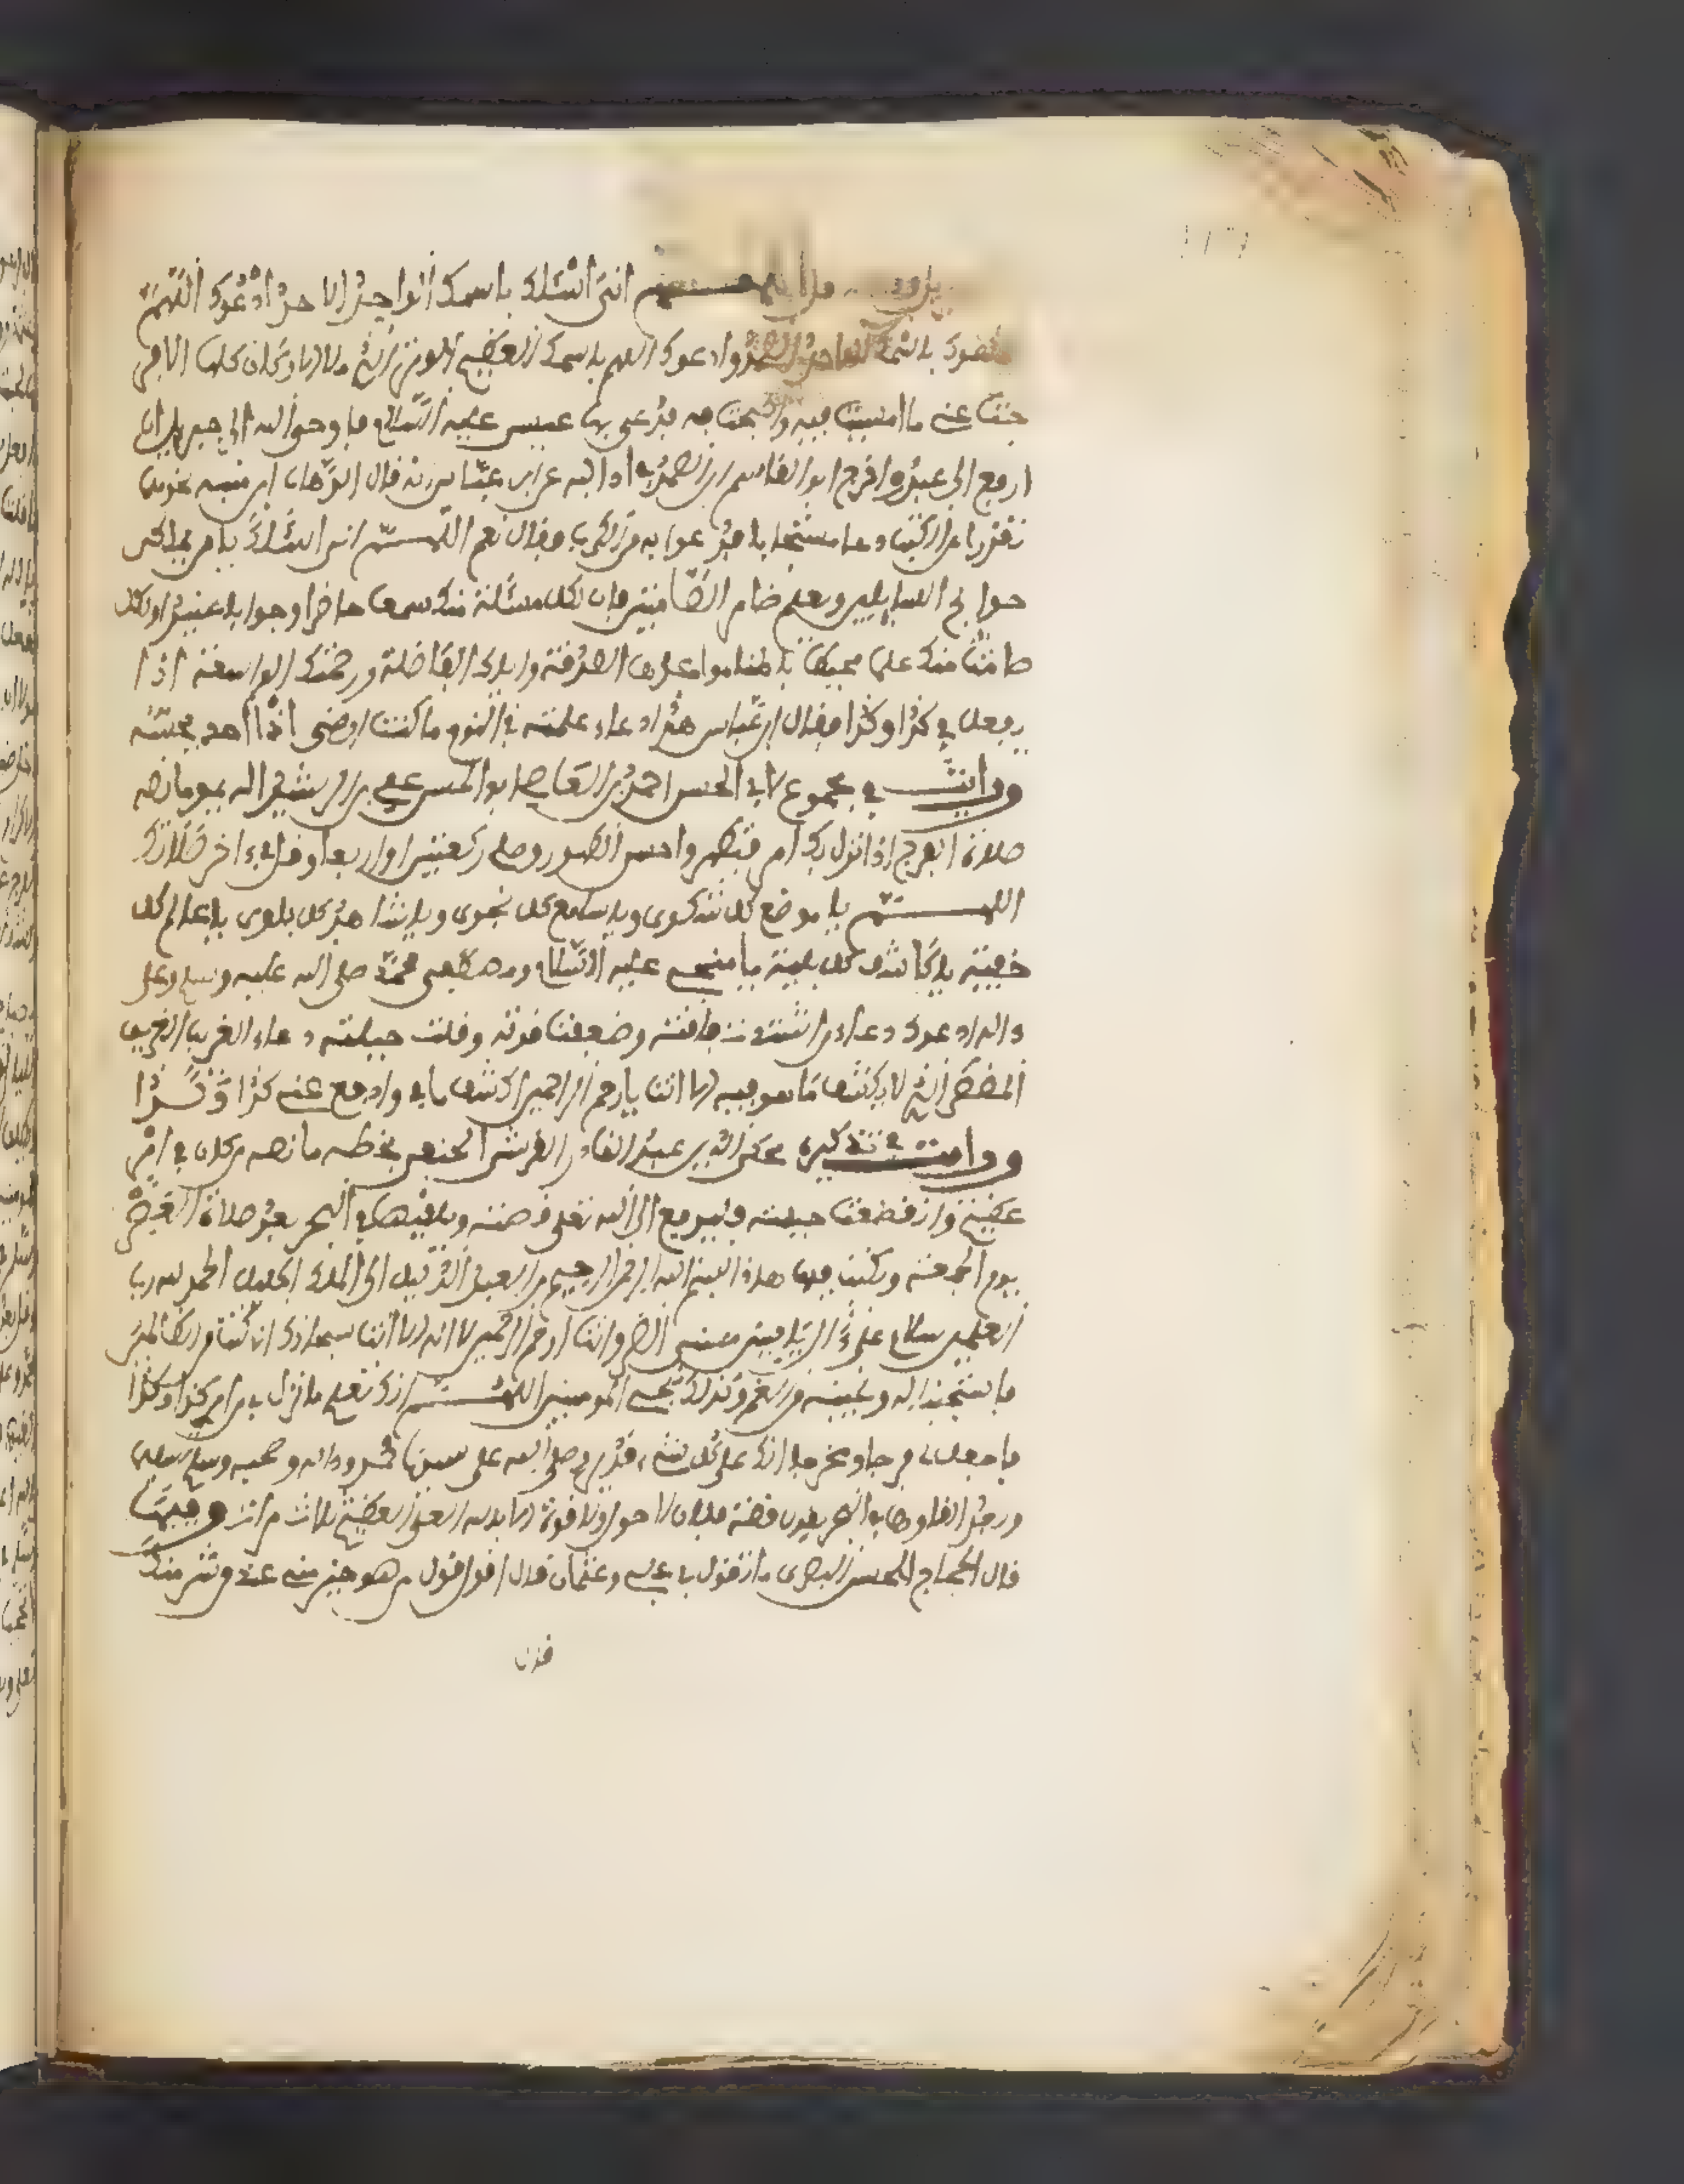 اني اسئلك باسمك الواحد الاحد ادعوك اللهم
باسمك الواحد الصمد وادعوك اللهم باسمك العظيم الوتر الذي ملا الاركان كلها الا فر
جت عنى ما امسيت فيه واصبحت فيه فدعى بها عيسى عليه السلام فاوحى الله الى جبريل ان
ارفع الى عبدي واخرج ابو القاسم ابن عن ابن عباس انه قال لوهب ابن منبه
تقرا من الكتب دعاء مستجابا فتدعوا به من الكرب فقال نعم اللهم اني اسئلك يا من يملك
حوايج السايلين ويعلم ضامر الصامتين فان لكل مسئلة منك سمعا حاضرا وجوابا عتيدا ولكل
صامت منك علما محيطا باطنا مواعدك الصدقة واياديك الفاضلة ورحمتك الواسعة اذا
يفعل في كذا وكذا فقال ابن عباس هذا دعاء علمته في النوم ما كنت ارى ان احدا يحسنه
ورايت في مجموع لابي الحسن احمد بن القاضي ابو الحسن علي بن الرشيد ما نصه
صلاة الفرج اذا نزل بك امر فتطهر واحسن الطهور وصل ركعتين او اربعا وقل في اخر صلاتك
اللهم يا موضع كل شكوى ويا سامع كل نجوى ويا شاهد كل بلوى يا عالم كل
خفية يا كاشف كل بلية يا منجى عليه السلام ومصطفى محمد صلى الله عليه وسلم وعلى
واله ادعوك دعاء من اشتدت فاقته وضعفت قوته وقلت حيلته دعاء الغريب الغريق
المضطر الذي لا يكشف ما هو فيه الا انت يا ارحم الراحمين اكشف ما بي وادفع عنى كذا وكذا
ورايت في تذكرة محي الدين عبد القادر القرشي الحنفي بخطه ما نصه من كان في امر
عظيم وانقطعت حيلته فليرفع الى الله تعلى قصته ويلقيها في البحر بعد صلاة العصر
يوم الجمعة ويكتب فيها هذا بسم الله الرحمن الرحيم من العبد الذليل الى الملك الجليل الحمد لله رب
العلمين سلام على ال ياسين مسني الضر وانت ارحم الراحمين لا اله الا انت سبحانك اني كنت من الظالمين
فاستجبنا له ونجيناه من الغم وكذلك ننجي المومنين اللهم انك تعلم ما نزل بي من امر كذا وكذا
فاجعل لي فرجا ومخرجا انك على كل شيء قدير وصلى الله على سيدنا محمد واله وصحبه وسلم
في البحر يقول قصة فلان لا حول ولا قوة الا بالله العلي العظيم ثلاث مرات وفيها
قال الحجاج للحسن البصري ما تقول في علي وعثمان قال اقول قول من هو خير مني عند من شر منك
قال